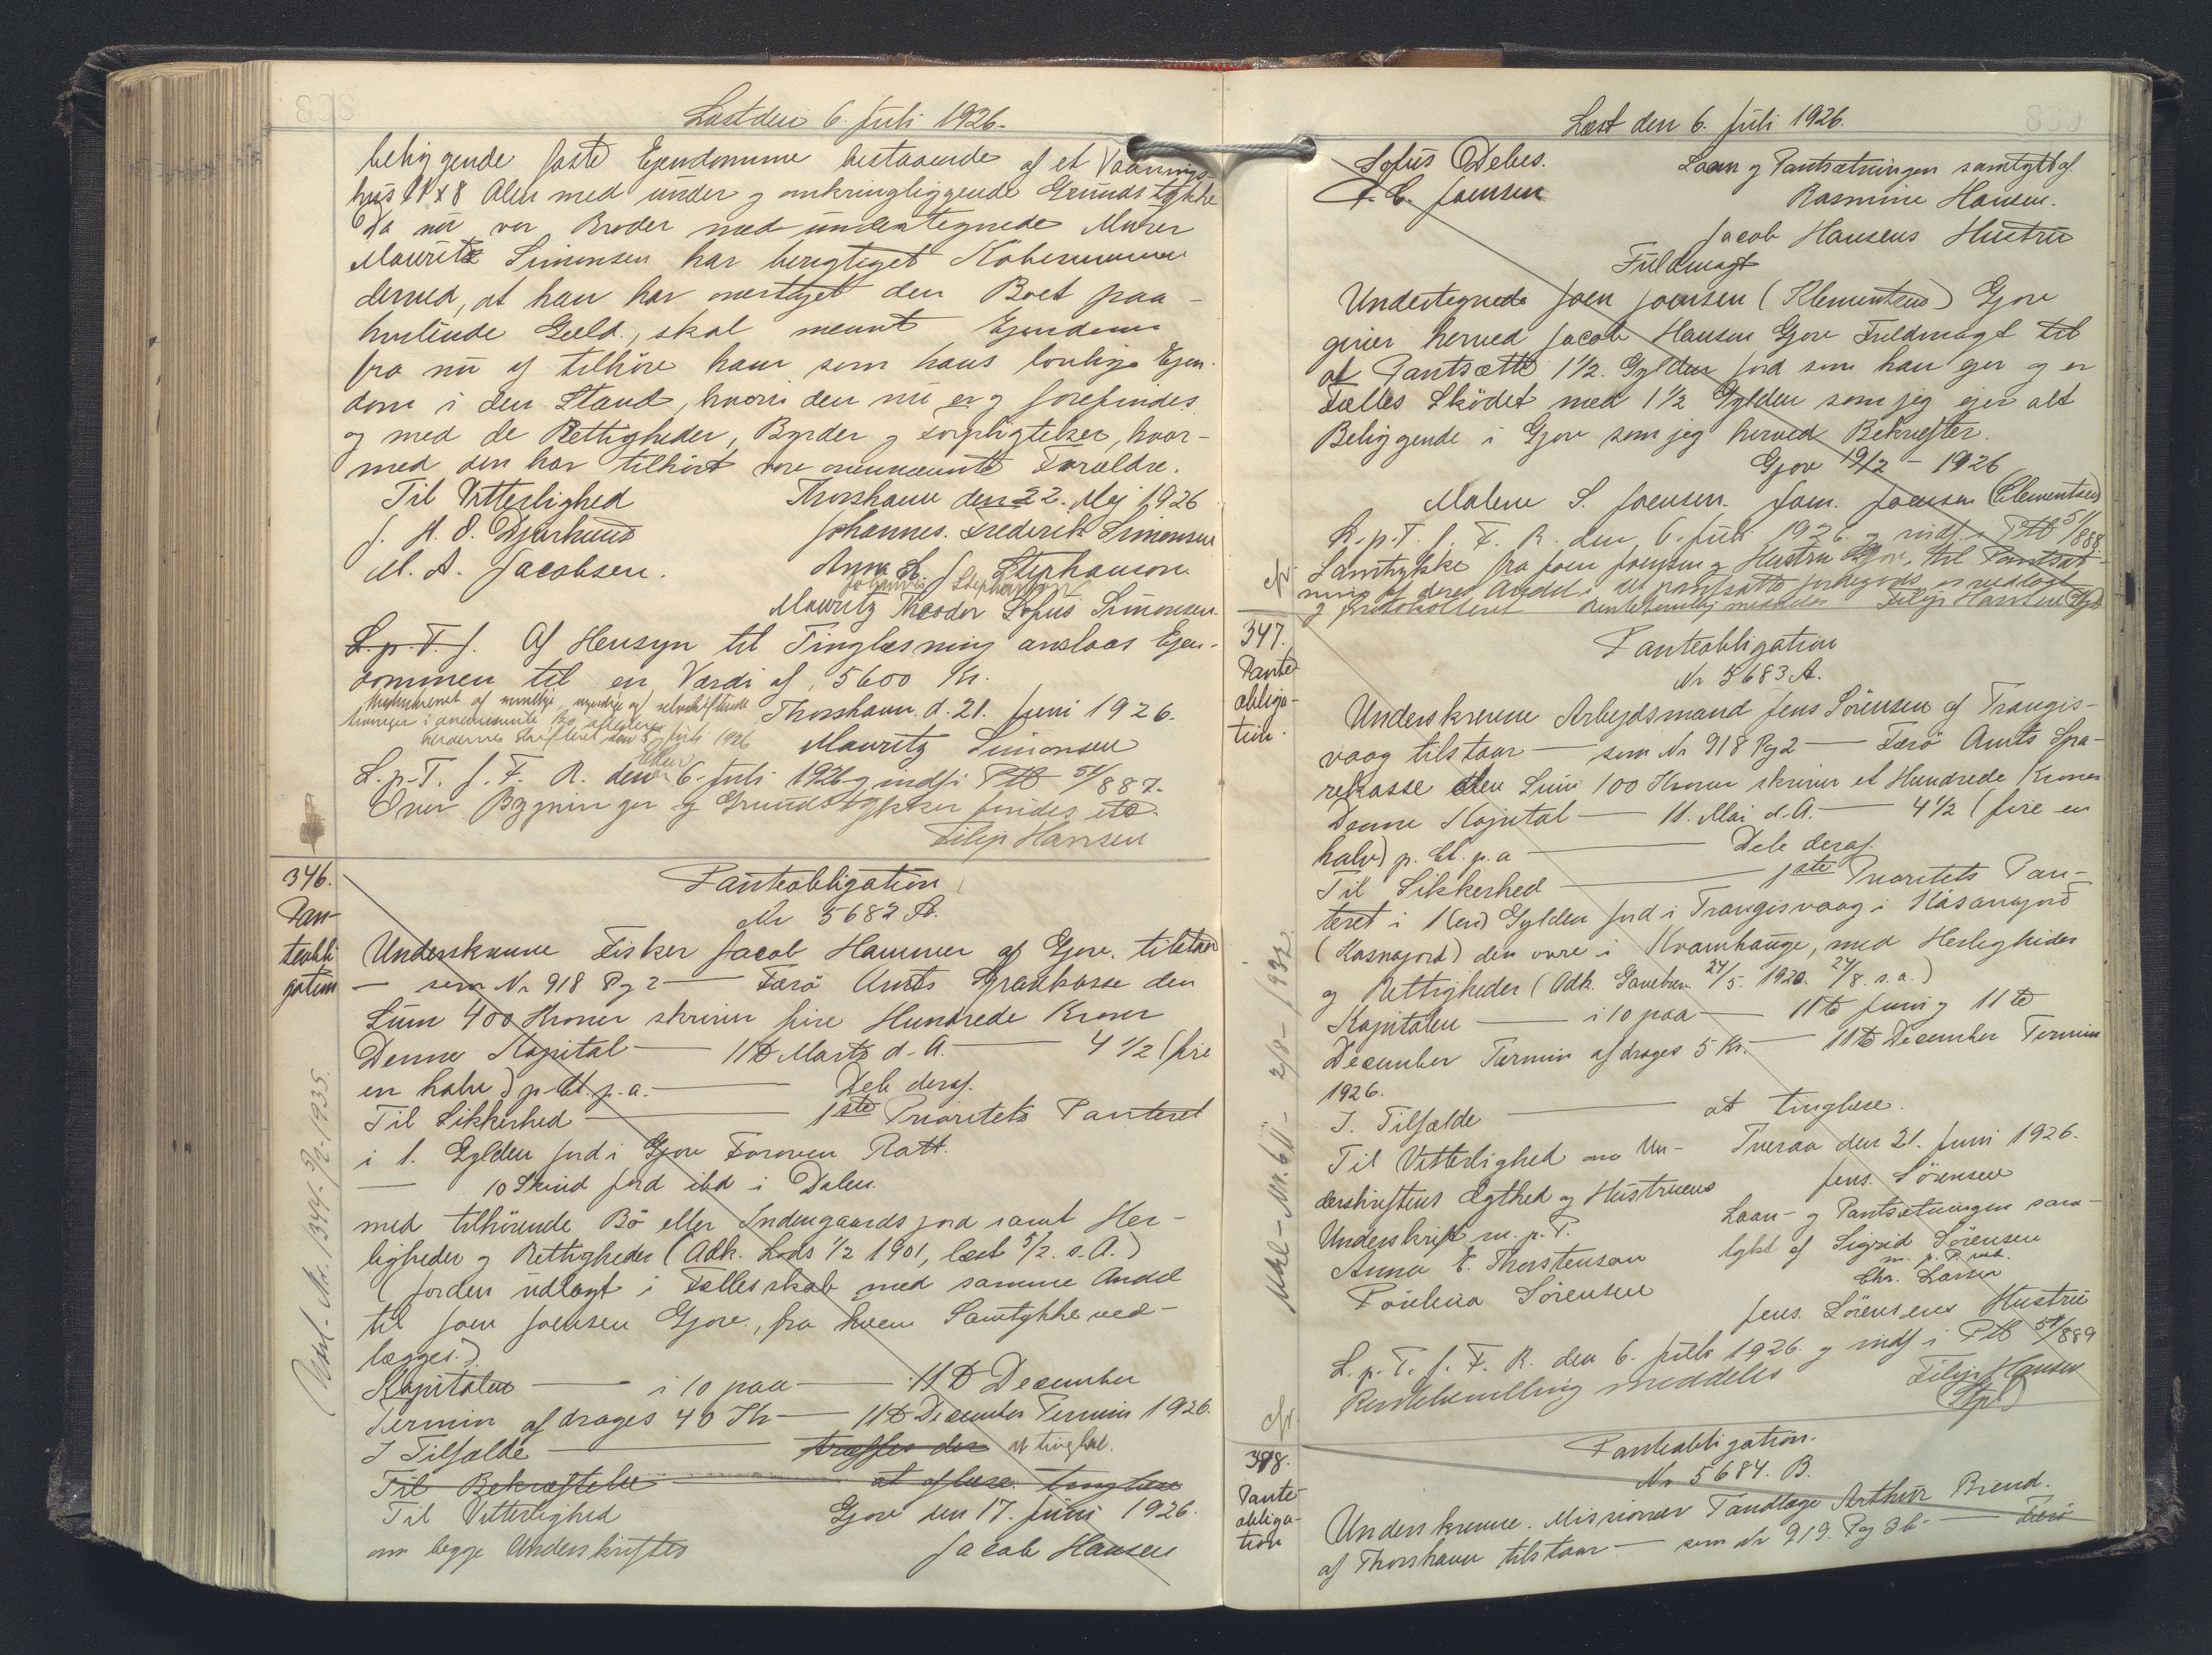 Læst den 6. Juli 1926.
beliggende faste Ejendomme bestaaende af et Vaanings-
hus 11x8 Alen med under og omkringliggende Grundstykke
Da nu vor Broder med undertegnede Murer
Mauritz Simonsen har berigtiget Købesummen
derved, at han har overtaget den Boet paa-
hvilende Gæld, skal nævnte Ejendom
fra nu af tilhøre ham som hans lovlige Ejen-
dom i den Stand, hvori den nu er og forefindes
og med de Rettigheder, Byrder og Forpligtelser, hvor-
med den har tilhørt vore ovennævnte Forældre.
Til Vitterlighed Thorshavn den 22. Maj 1926
J. H. O. Djurhuus Johannes Frederik Simonsen
M. A. Jacobsen. Anna S. J. Stephanson
Mauritz Theodor Sofus Simonsen.
L. p. T. f. Af Hensyn til Tinglæsning anslaas Ejen-
dommen til en Værdi af 5600 Kr.
Thorshavn d. 21. Juni 1926.
Mauritz Simonsen
L. p. T. f. F. R. den 6. Juli 1926 og indf i PtB 54/887.
Over Bygninger og Grundstykker findes
Filip Hansen
346.
Pan-
teobli
gation
Panteobligation
Nr 5682 A.
Underskrevne Fisker Jacob Hammer af Gjov. tilstaar
— som Nr 918 Pg 2 — Færø Amts Sparekasse den
Sum 400 Kroner skriver fire Hundrede Kroner
Denne Kapital — 11te Marts d. A. — 4 1/2 (fire
en halv) p. Ct. p. a. — Dele deraf.
Til Sikkerhed — 1ste Prioritets Panteret
i 1. Gylden Jord i Gjov Foroven Ratt.
— 10 Skind Jord ibd i Dalen.
med tilhørende Bø eller Indengaardsjord samt Her-
ligheder og Rettigheder (Adk. Lods 1/2 1901, læst 5/2. s. A.)
(Jorden udlagt i Fællesskab med samme Andel
til Joen Joensen Gjov., fra hvem Samtykke ved-
lægges.)
Kapitalen — i 10 paa — 11te December
Termin afdrages 40 Kr — 11te December Termin 1926.
I Tilfælde — træffes der at tinglæse.
Til Bekræftelse — at aflæse tinglæse
Til Vitterlighed Gjov den 17. Juni 1926.
om begge Underskrifter Jacob Hansen
Udsl. Nr. 1344. 1935.
Læst den 6. Juli 1926.
Sofus Debes. Laan og Pantsætningen samtykt af
J. C. Joensen Rasmine Hansen.
Jacob Hansens Hustru
Fuldmagt
Undertegnede Joen Joensen (Klementsen) Gjov
giver herved Jacob Hansen Gjov Fuldmagt til
at Pantsætte 1 1/2. Gylden Jord som han ejer og er
Fælles Skødet med 1 1/2 Gylden som jeg ejer alt
Beliggende i Gjov som jeg herved Bekræfter.
Gjov 19/2 - 1926
Malene S. Joensen. Joen. Joensen (Clementsen)
L. p. T. f. F. R. den 6. Juli 1926. og indf. i PtB 54/888
Samtykke fra Joen Joensen og Hustru Gjov, til Pantsæt-
ning af deres Andel i det pantsatte Jordegods er vedlagt
og protokolleret Rentebevilling meddeles Filip Hansen
347.
Pante-
obliga-
tion.
Panteobligation
Nr 5683 A.
Underskrevne Arbejdsmand Jens Sörensen af Trangis-
vaag tilstaar — som Nr 918 Pg 2 — Færø Amts Spa-
rekasse den Sum 100 Kroner skriver et Hundrede Kroner
Denne Kapital — 11. Mai d. A. — 4 1/2 (fire en
halv) p. Ct. p. a — Dele deraf.
Til Sikkerhed — 1ste Prioritets Pan-
teret i 1 (en) Gylden Jord i Trangisvaag i Kásanagjord
(Kasnagord) den øvre i Kvamhauge, med Herligheder
og Rettigheder (Adk. Gavebrev 24/5. 1920. 24/8. s. a.)
Kapitalen — i 10 paa — 11te Juni og 11te
December Termin afdrages 5 Kr. — 11te December Termin
1926.
I. Tilfælde — at tinglæse.
Til Vitterlighed om Un- Tveraa den 21. Juni 1926.
derskriftens Ægthed og Hustruens Jens. Sörensen
Underskrift m. p. P. Laan- og Pantsætningen sam-
Anna E. Thorstensen tykt af Sigrid Sörensen
m. p. P. ved.
Poulina Sörensen Chr. Larsen
Jens. Sörensens Hustru
L. p. T. f. F. R. den 6. Juli 1926. og indf i PtB 54/889
Rentebevilling meddeles Filip Hansen
Udsl - Nr. 611 - 2/8 - 1932.
348.
Pante-
obliga-
tion
Panteobligation.
Nr 5684. B.
Underskrevne. Missionær Tandlæge Arthur Brend.
af Thorshavn tilstaar — som Nr 919. Pg 3 b. — Færø